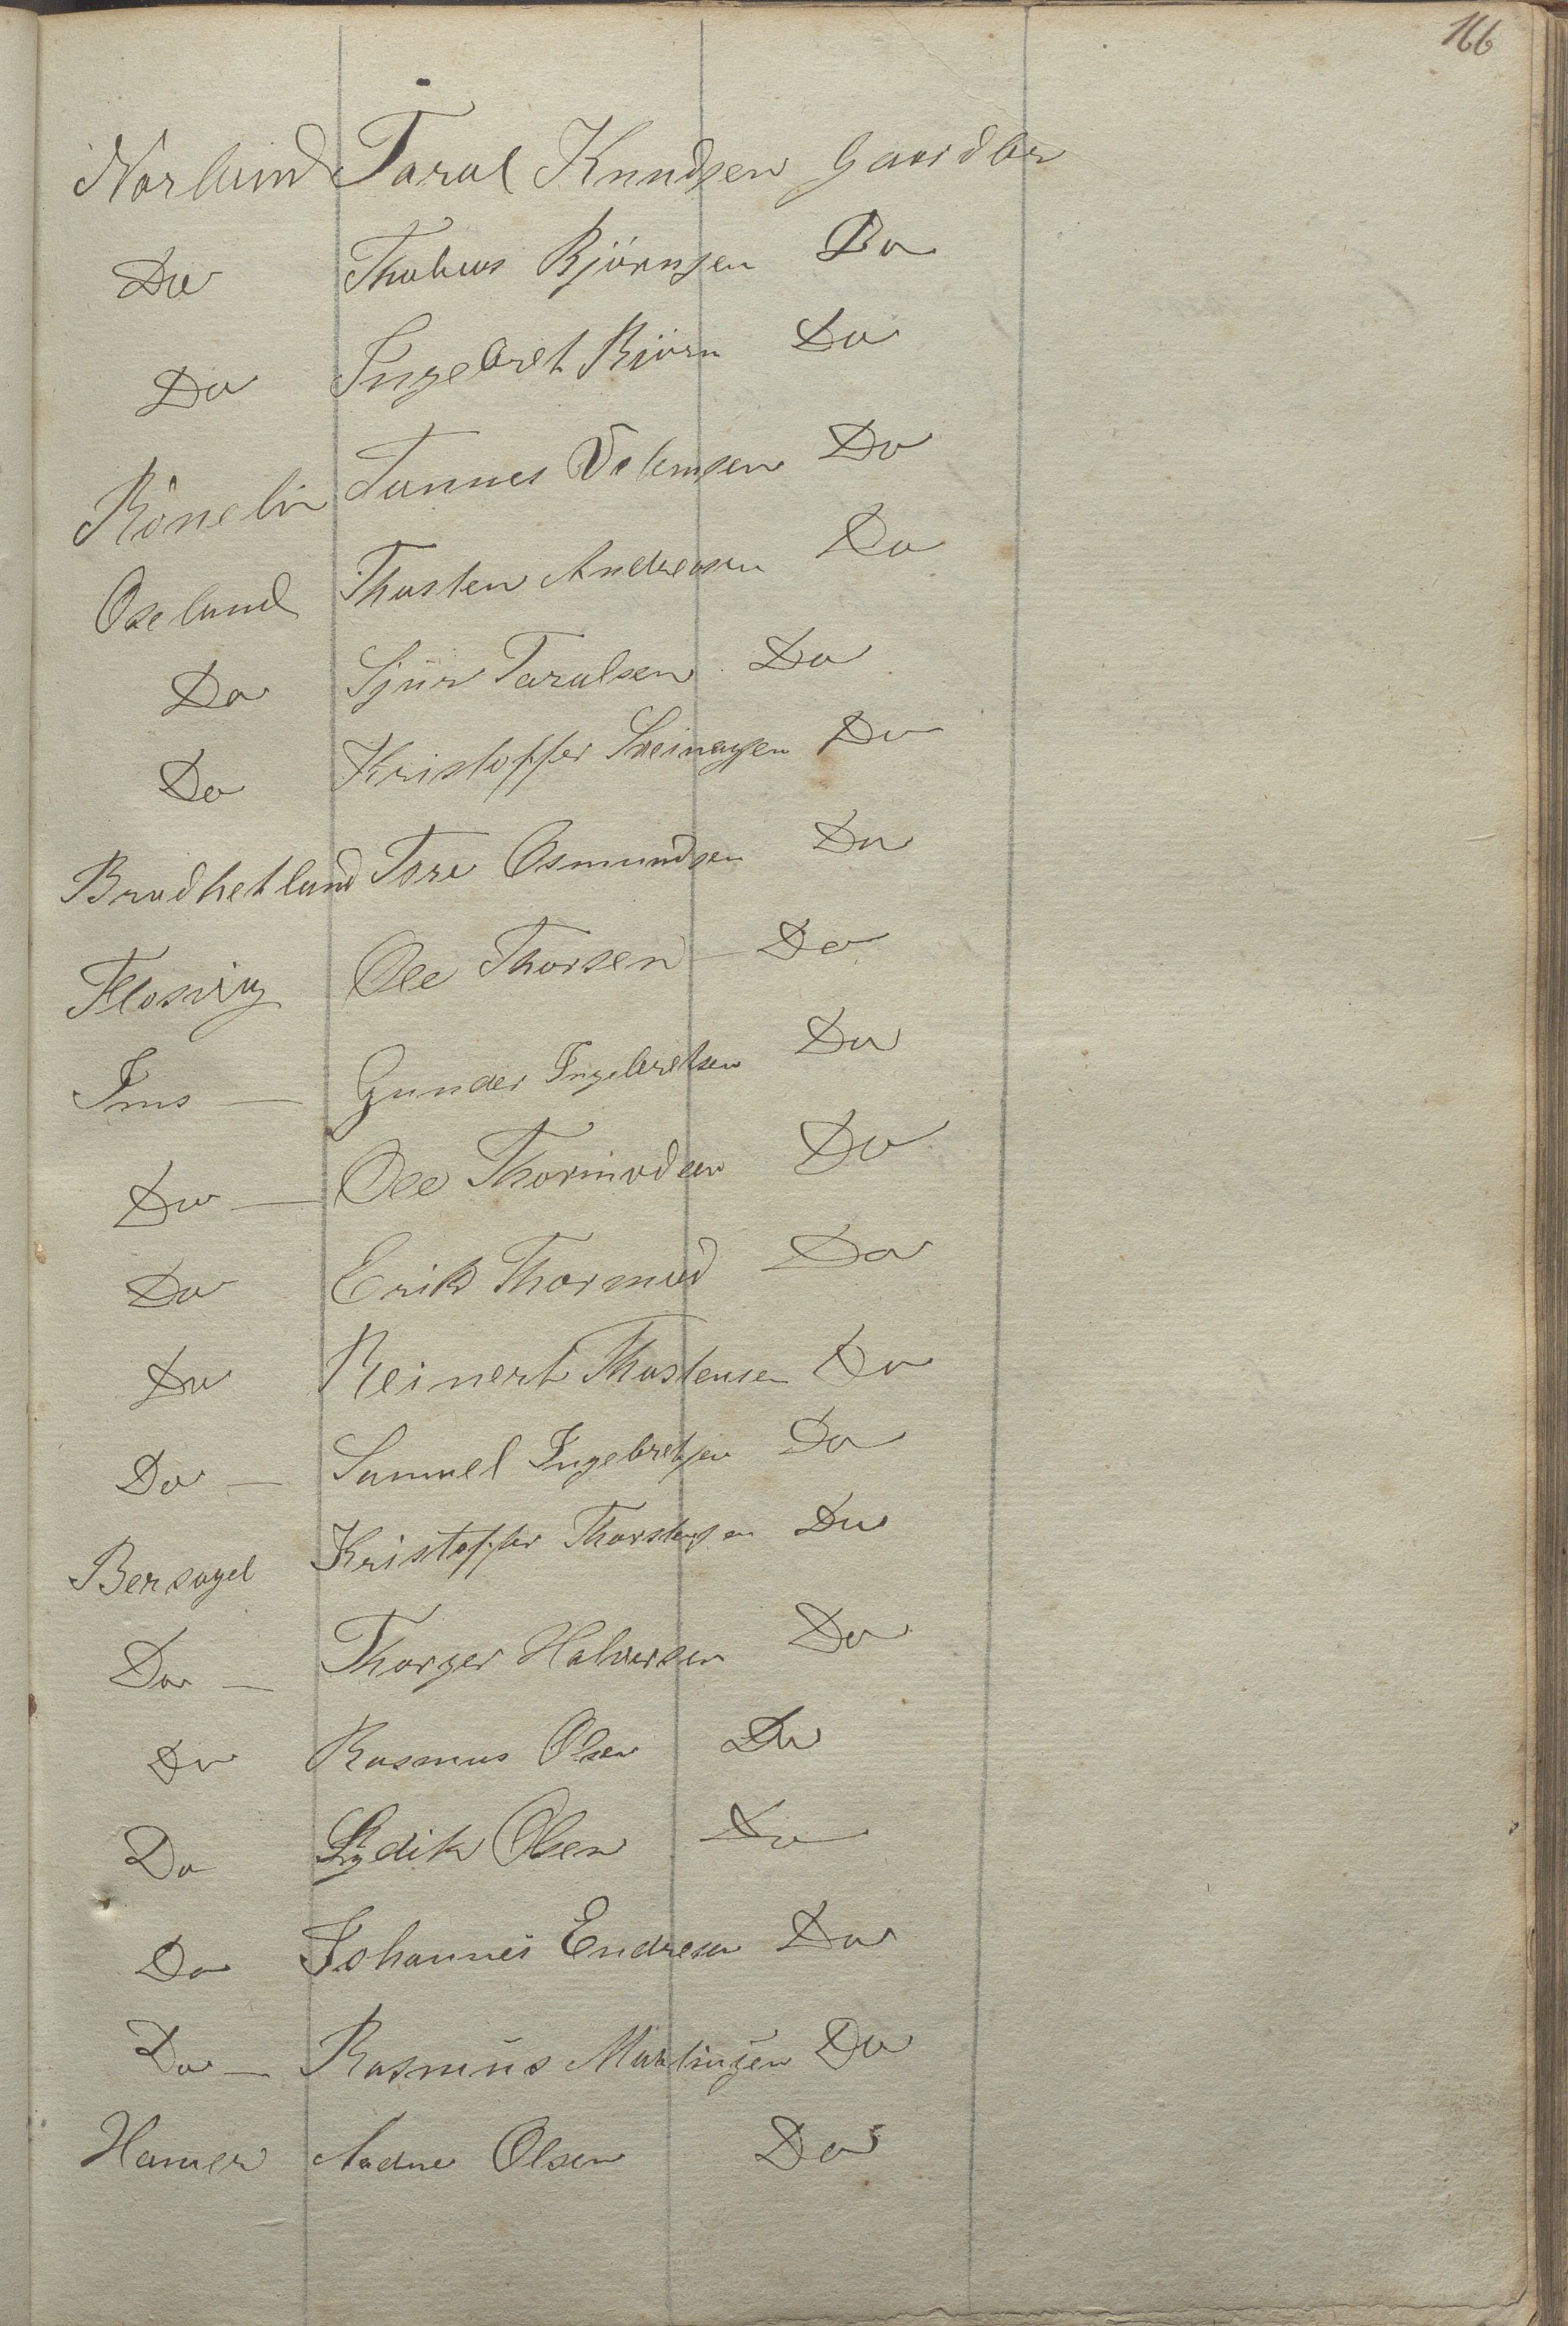 166
Norland Taral Knudsen Gaardbr
Do Thobias Björnsen Do
Do Ingebret Björn Do
Rönelin Tannes Do
Oseland Thosten Andreasen Do
Do Sjur Taralsen Do
Do Kristoffer Sveinsen Do
Bradhetland Tore Osmundsen Do
Flosvig Ole Thorsen Do
Ims — Gunder Ingebretsen Do
Do — Ole Thormodsen Do
Do Erik Thormod Do
Do Reinert Thostensen Do
Do — Samuel Ingebretsen Do
Bersagel Kristoffer Thorstensen Do
Do — Thorger Halversen Do
Do Rasmus Olsen Do
Do Lydik Olsen Do
Do Johannes Endresen Do
Do — Rasmus Do
Hamer Aadne Olsen Do